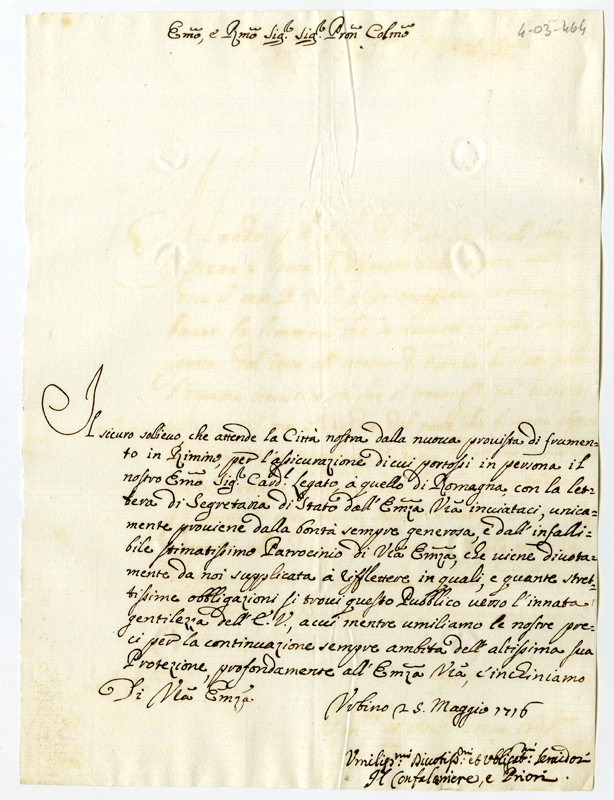 4-03-464
Emo, e Rmo Sig.r Sig.r Pron Colmo
Il sicuro sollievo, che attende la Città nostra dalla nuova provista di frumen=
to in Rimino, per l'assicurazione di cui portossi in persona il
nostro Emo Sig.r Card.l Legato, à quello di Romagna, con la let=
tera di Segretaria di Stato dall'Emza Vra inviataci, unica=
mente proviene dalla bontà sempre generosa, e dall'infalli=
bile stimatissimo Patrocinio di Vra Emza, che viene divota=
mente da noi supplicata à riflettere in quali, e quante stret=
tissime obbligazioni si trovi questo Pubblico verso l'innata
gentilezza dell'E.V., a cui mentre umiliamo le nostre pre=
ci per la continuazione sempre ambita dell'altissima sua
Protezione, profondamente all'Emza Vra, c'inchiniamo
Di Vra Emza
Urbino 25. Maggio 1716
Umiliss.mi Divotiss.mi et Obligat.mi Servidori
Il Confaloniere, e Priori